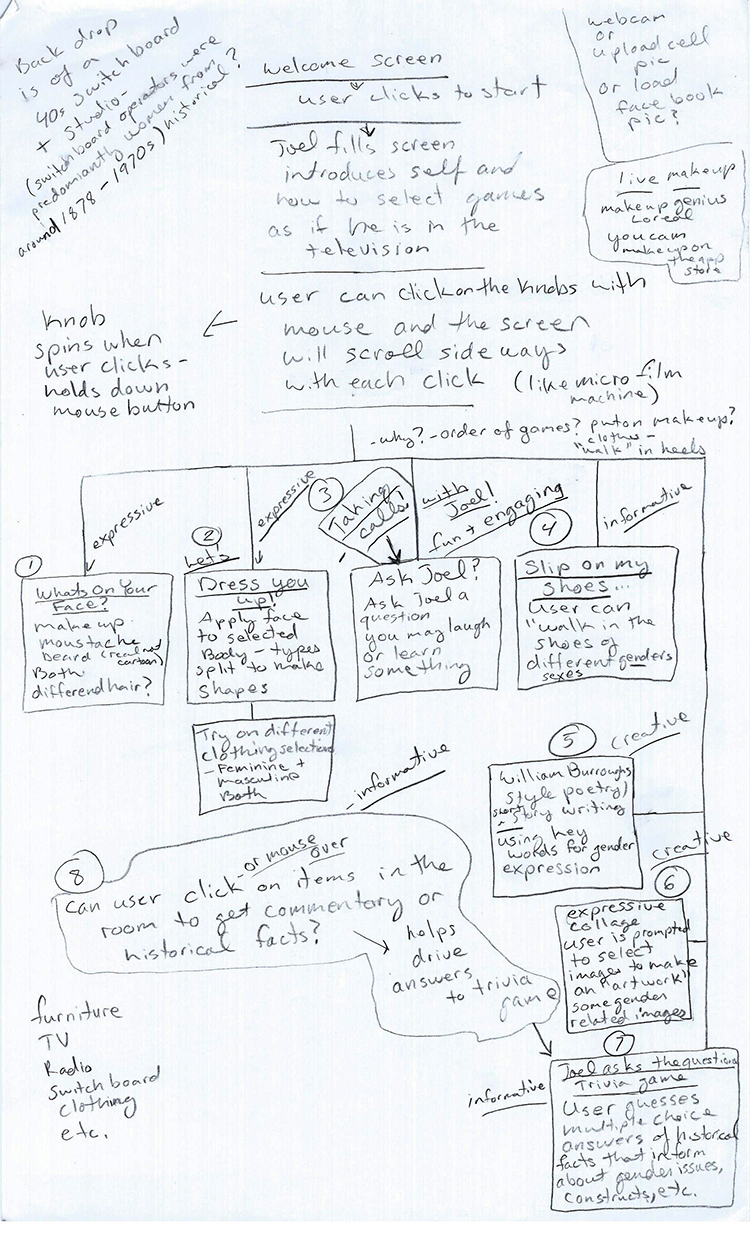 Back drop
is of a
40s Switchboard
+ Studio-
(switchboard operators were
predomiantly women from
around 1878-1970s) historical?
welcome screen
user clicks to start
Joel fills screen
introduces self and
how to select games
as if he is in the
television
webcam
or
upload cell
pic
or load
face book
pic?
live makeup
makeup genius
Loreal
youcam
makeup on
the app
store
user can click on the knobs with
mouse and the screen
will scroll sideways
with each click (like micro film
machine)
Knob
spins when
user clicks-
holds down
mouse button
-why? -order of games? put on makeup?
clothes-
"walk" in heels
expressive
1
Whats On Your
Face?
make up
moustache
beard (real not
cartoon)
Both
differend hair?
expressive
2
Let's
Dress you
up!
Apply face
to selected
Body-types
split to make
shapes
Try on different
clothing selections
- Feminine +
masculine
Both
3
Taking
calls!
with
Joel!
fun + engaging
Ask Joel?
Ask Joel a
question
you may laugh
or learn
something
informative
4
Slip on my
shoes...
User can
"walk in the
shoes of
different genders
sexes
5
creative
William Burroughs
Style poetry/
short
+ story writing
using key
words for gender
expression
creative
6
expressive
collage
user is prompted
to select
images to make
an "artwork"
some gender
related images
7
informative
Joel asks the question
Trivia game
User guesses
multiple choice
answers of historical
facts that inform
about gender issues,
constructs, etc.
-informative
8
or mouse over
Can user click on items in the
room to get commentary or
historical facts?
helps
drive
answers
to trivia
game
furniture
TV
Radio
Switch board
clothing
etc.